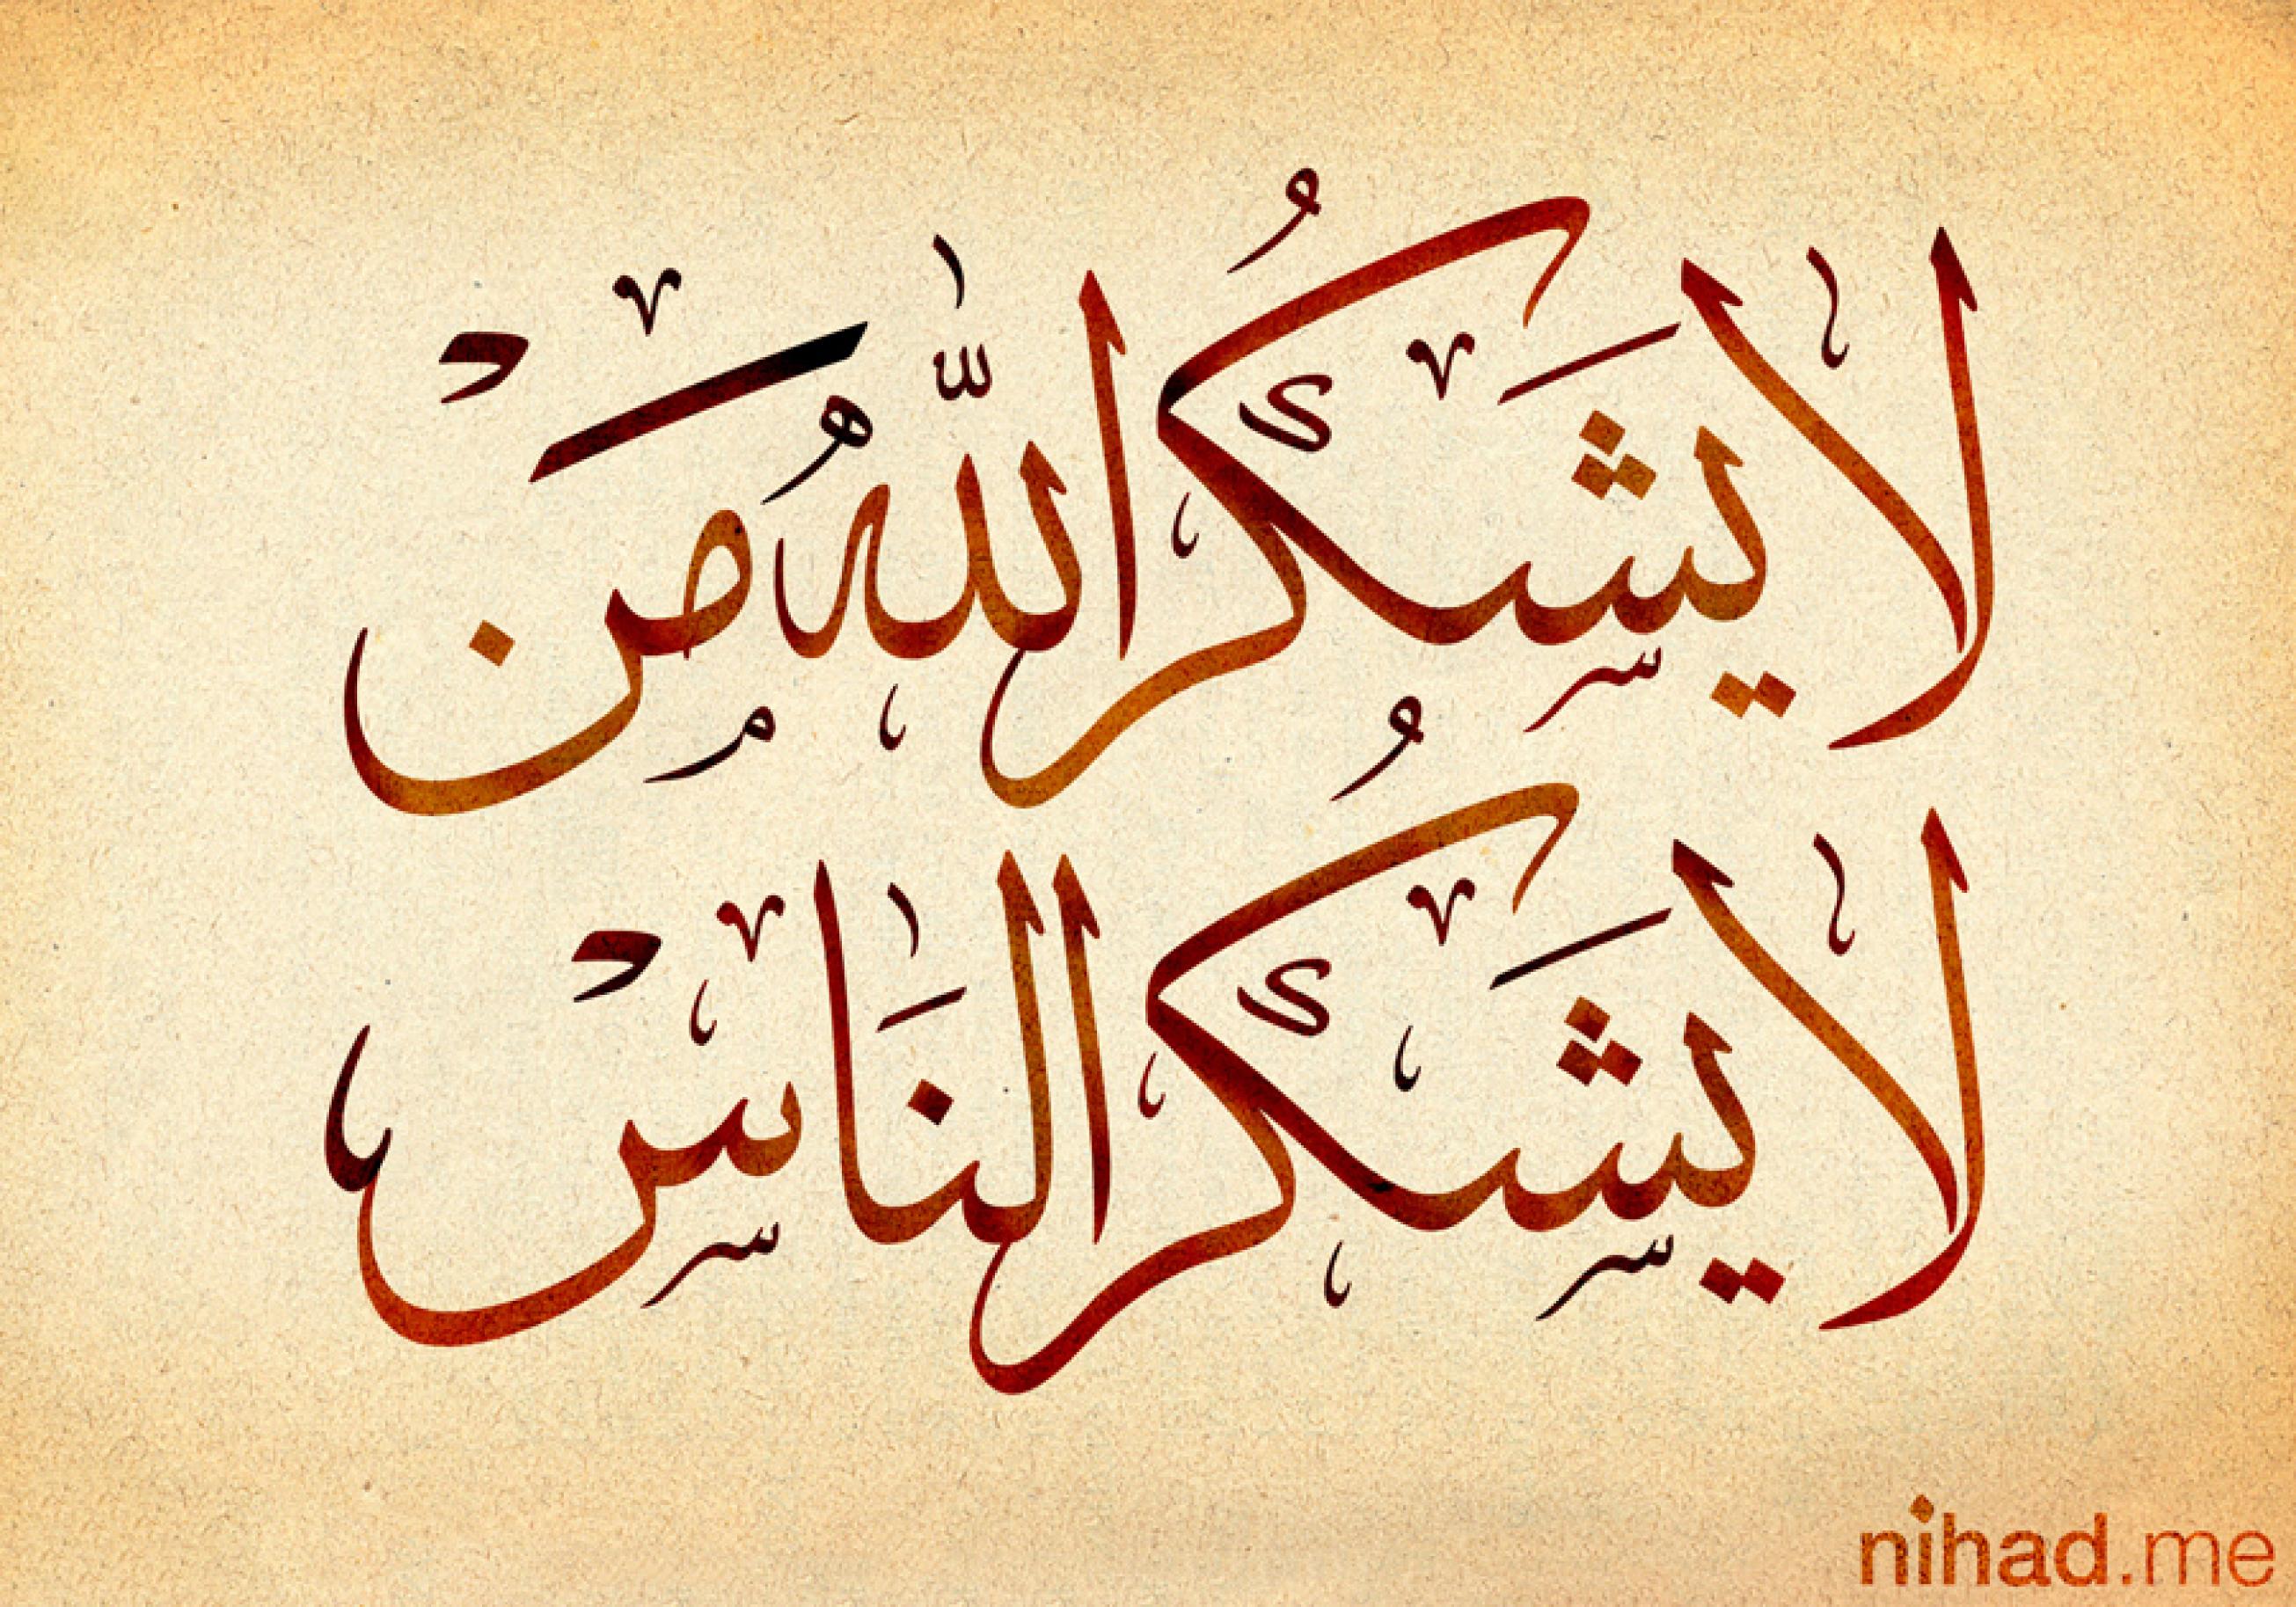 لا يَشكُر اللهُ مَنْ
لا يَشكُر النَاسْ
nihad.me